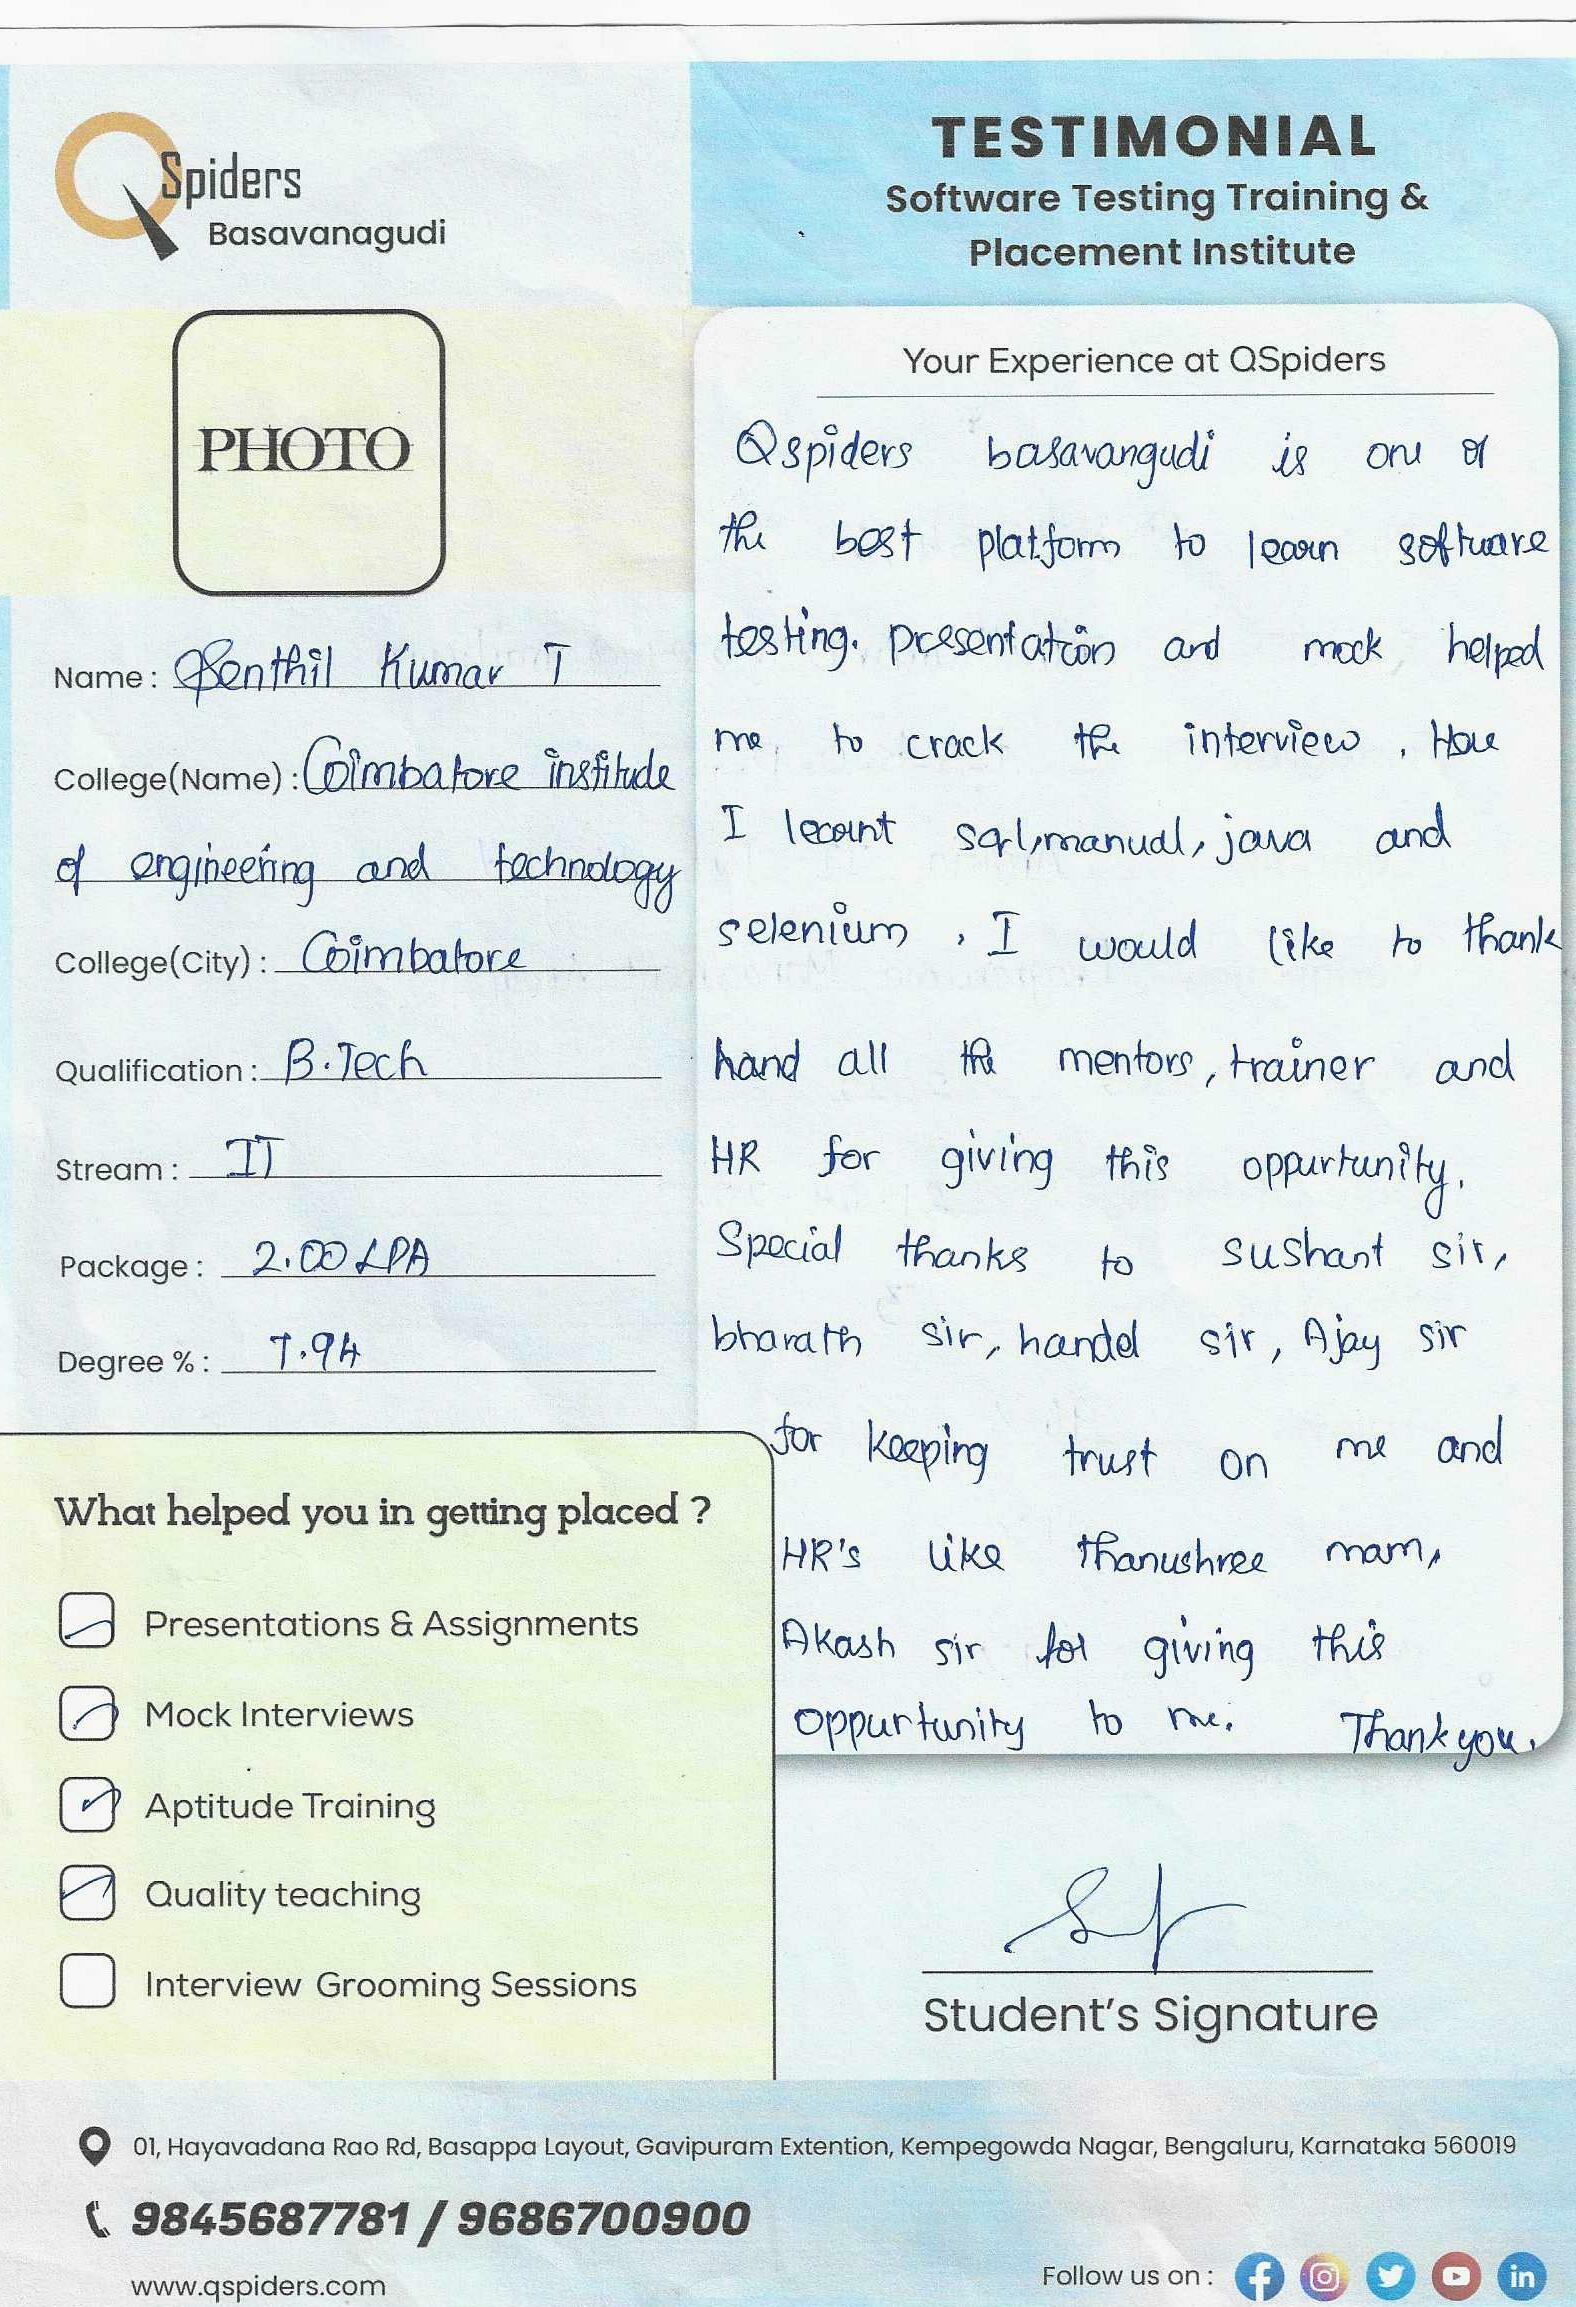 QSpiders
Basavanagudi
TESTIMONIAL
Software Testing Training &
Placement Institute
PHOTO
Name : Senthil Kumar T
College(Name) : Coimbatore institude
of engineering and technology
College(City) : Coimbatore
Qualification : B.Tech
Stream : IT
Package : 2.00 LPA
Degree % : 7.94
Your Experience at QSpiders
Qspiders basavangudi is one of
the best platform to learn software
testing. presentation and mock helped
me to crack the interview . Here
I learnt sql, manual, java and
selenium , I would like to thank
hand all the mentors, trainer and
HR for giving this oppurtunity.
Special thanks to sushant sir,
bharath sir, handel sir, Ajay sir
for keeping trust on me and
HR's like thanushree mam,
Akash sir for giving this
oppurtunity to me. Thank you.
What helped you in getting placed ?
Presentations & Assignments
Mock Interviews
Aptitude Training
Quality teaching
Interview Grooming Sessions
Student's Signature
01, Hayavadana Rao Rd, Basappa Layout, Gavipuram Extention, Kempegowda Nagar, Bengaluru, Karnataka 560019
9845687781 / 9686700900
www.qspiders.com
Follow us on :